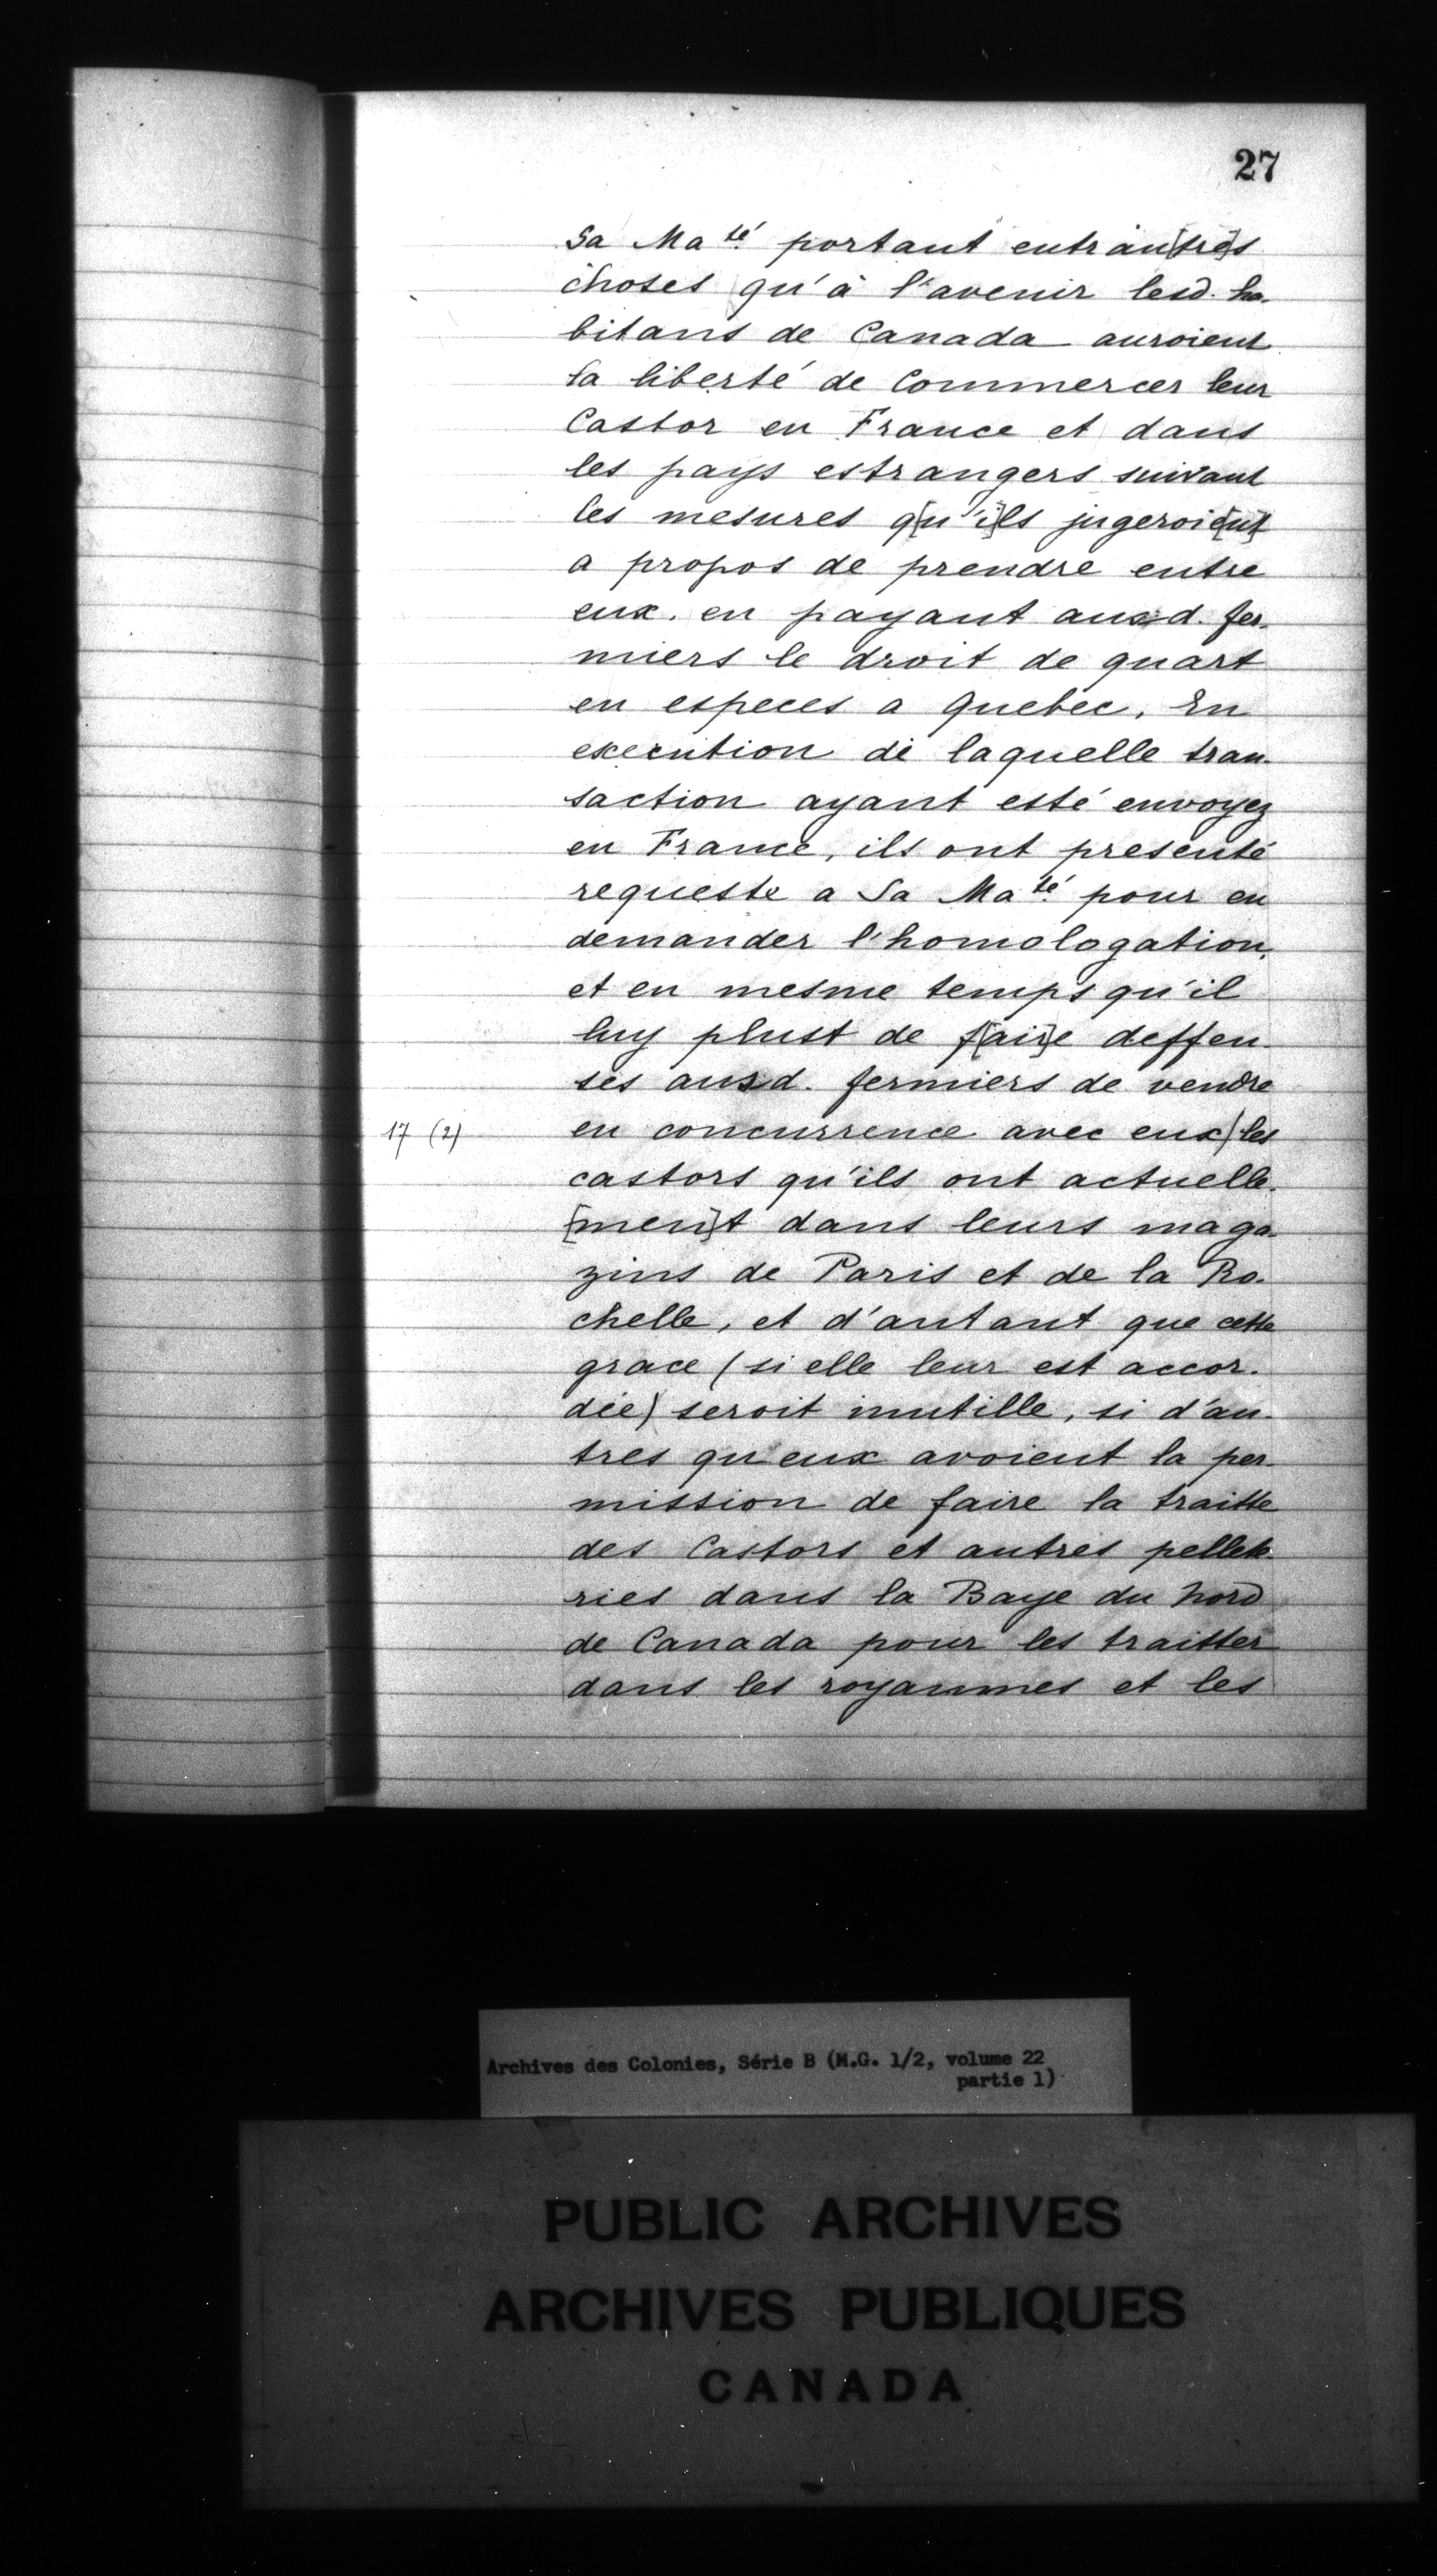 27
Sa Ma.té portant entrau[tre]s
choses qu'à l'avenir lesd. ha-
bitans de Canada auroient
la liberté de Commercer leur
Castor en France et dans
les pays estrangers suivant
les mesures q[u'i]ls jugeroi[ent]
a propos de prendre entre
eux. en payant auxd. fer-
miers le droit de quart
en especes a Quebec. En
execution de laquelle tran-
saction ayant esté envoyez
en France, ils ont presenté
requeste a Sa Ma.té pour en
demander l'homologation,
et en mesme temps qu'il
luy plust de f[air]e deffen-
ses ausd. fermiers de vendre
17 (2) en concurrence avec eux | les
castors qu'ils ont actuelle-
[men]t dans leurs maga-
zins de Paris et de la Ro-
chelle, et d'autant que cette
grace (si elle leur est accor-
dée) seroit inutille, si d'au-
tres qu'eux avoient la per-
mission de faire la traitte
des Castors et autres pellete-
ries dans la Baye du Nord
de Canada pour les traitter
dans les royaumes et les
Archives des Colonies, Série B (M.G. 1/2, volume 22
partie 1)
PUBLIC ARCHIVES
ARCHIVES PUBLIQUES
CANADA